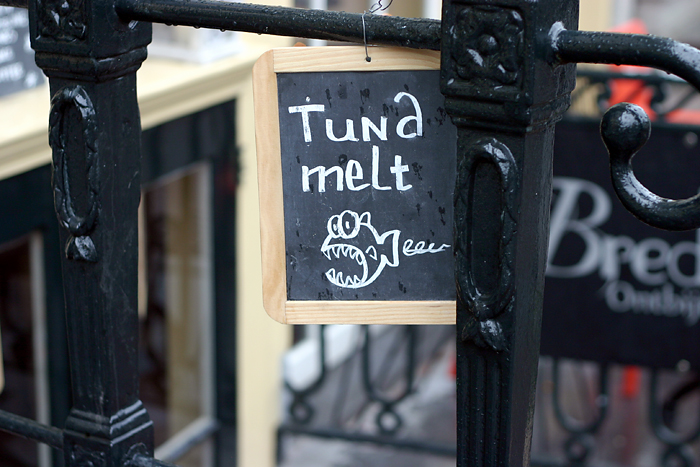 Tuna
melt
Bred
Ontbij